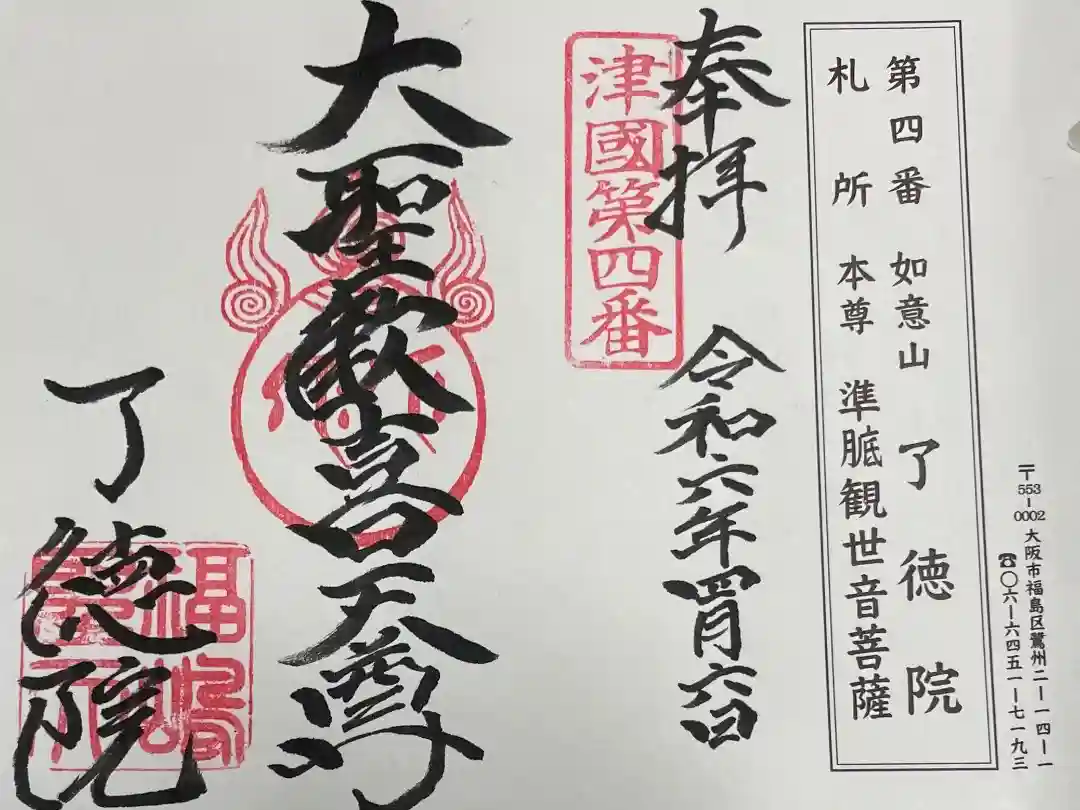 第四番 如意山 了徳院
札所 本尊 準胝観世音菩薩
〒553-0002 大阪市福島区鷺州二-一四-一
☎〇六-六四五一-七一九三
奉拝 令和六年四月六日
津國第四番
大聖歓喜天尊
了徳院